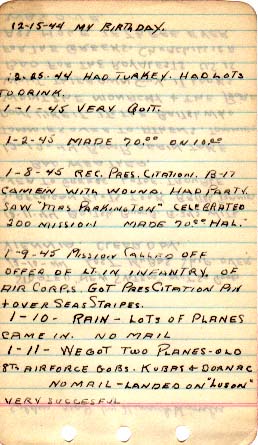 12-15-44 MY BIRTHDAY.
12-25-44 HAD TURKEY. HAD LOTS
TO DRINK.
1-1-45 VERY QUIT.
1-2-45 MADE 70.00 ON 10.00
1-8-45 REC. PRES. CITATION. B-17
CAME IN WITH WOUND. HAD PARTY.
SAW "MRS PARKINGTON" CELEBRATED
200 MISSION MADE 70.00 HAL.
1-9-45 MISSION CALLED OFF
OFFER OF LT. IN INFANTRY, OF
AIR CORPS. GOT PRES CITATION PIN
+ OVER SEAS STRIPES.
1-10- RAIN - LOTS OF PLANES
CAME IN. NO MAIL
1-11- WE GOT TWO PLANES-OLD
8TH AIRFORCE GOBS. KUBAS &
NO MAIL-LANDED ON "LUSON"
VERY SUCCESFUL